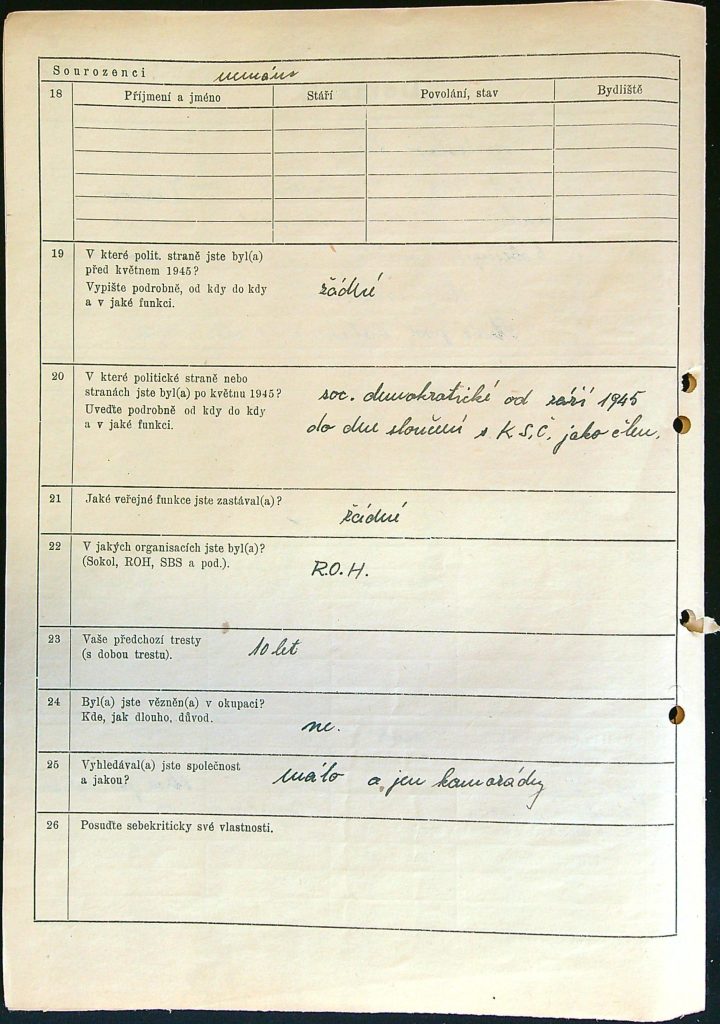 Sourozenci nemám
18 Příjmení a jméno Stáří Povolání, stav Bydliště
19 V které polit. straně jste byl(a)
před květnem 1945?
Vypište podrobně, od kdy do kdy
a v jaké funkci.
žádné
20 V které politické straně nebo
stranách jste byl(a) po květnu 1945?
Uveďte podrobně od kdy do kdy
a v jaké funkci.
soc. demokratické od září 1945
do dne sloučení s K.S.Č. jako člen.
21 Jaké veřejné funkce jste zastával(a)?
žádné
22 V jakých organisacích jste byl(a)?
(Sokol, ROH, SBS a pod.).
R.O.H.
23 Vaše předchozí tresty
(s dobou trestu).
10 let
24 Byl(a) jste vězněn(a) v okupaci?
Kde, jak dlouho, důvod.
ne.
25 Vyhledával(a) jste společnost
a jakou?
málo a jen kamarády
26 Posuďte sebekriticky své vlastnosti.